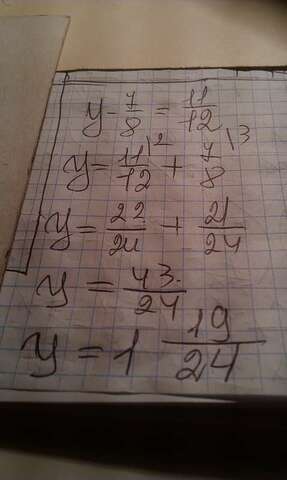 y - 7/8 = 11/12
y = 11/12 \2 + 7/8 \3
y = 22/24 + 21/24
y = 43/24
y = 1 19/24